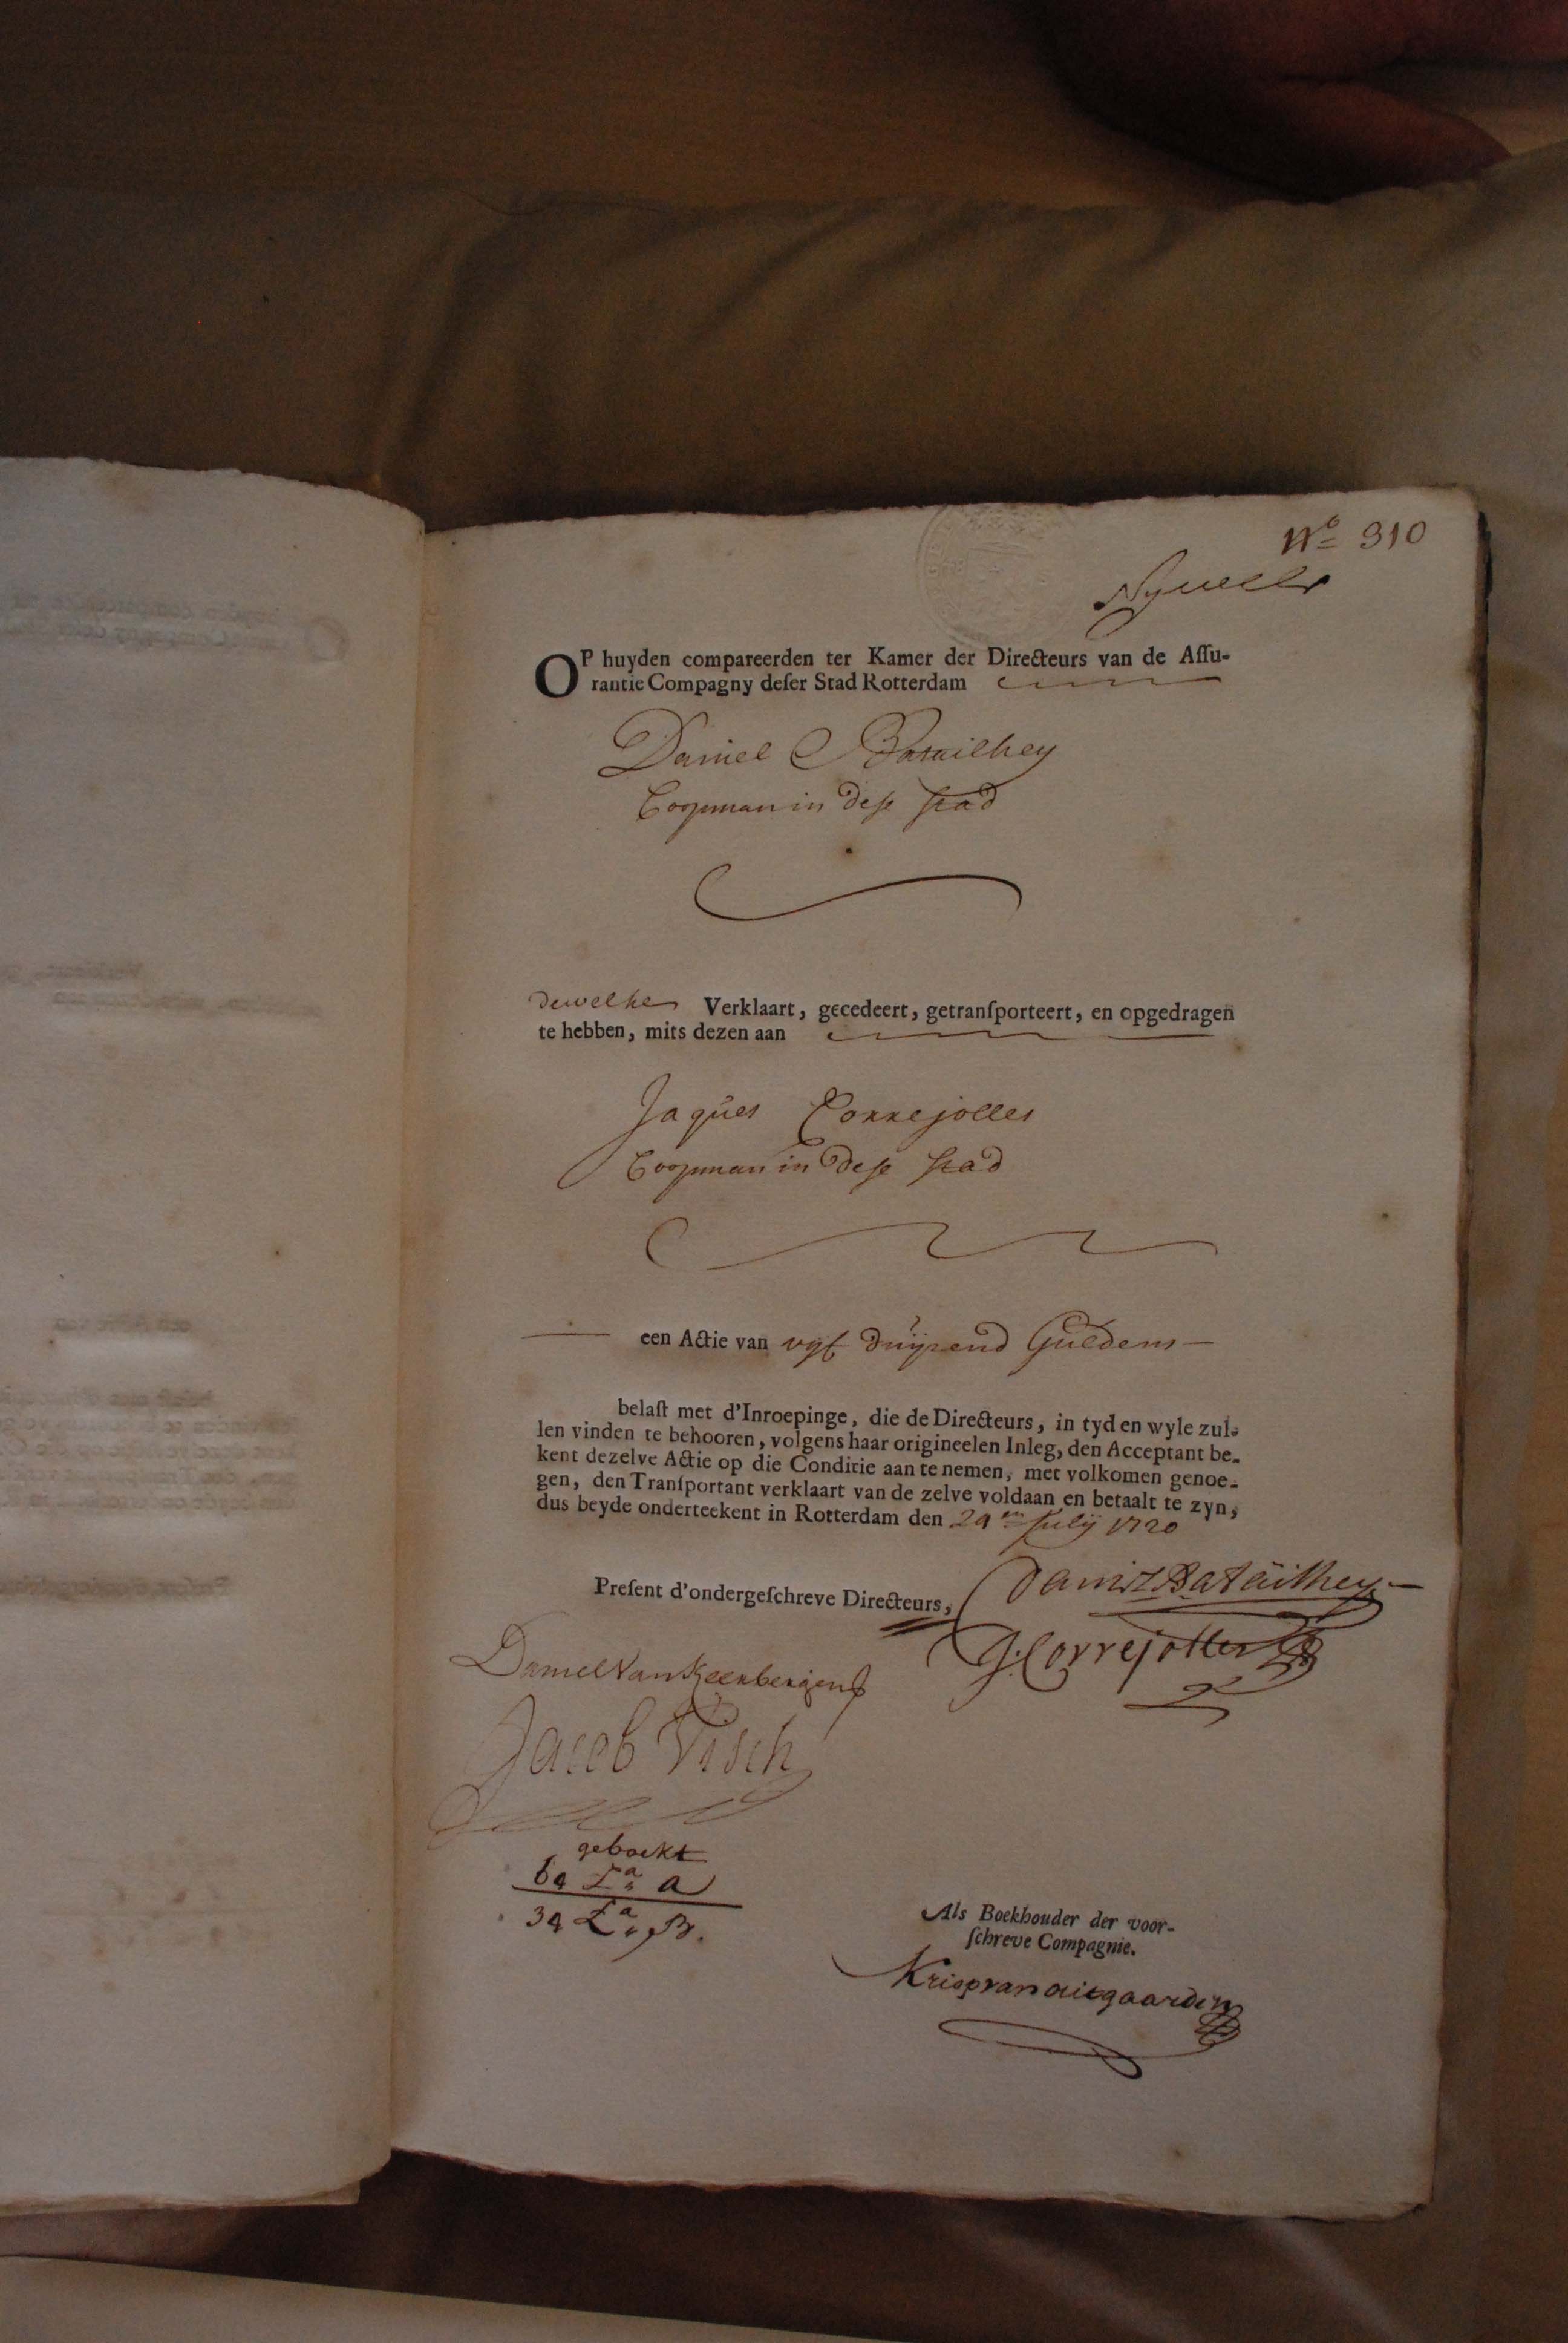 No 310
OP huyden compareerden ter Kamer der Directeurs van de Aſſu-
rantie Compagny deſer Stad Rotterdam
Daniel Batailhey
Coopman in deſe ſtad
dewelke Verklaart, gecedeert, getranſporteert, en opgedragen
te hebben, mits dezen aan
Jaques Correjolles
Coopman in deſe ſtad
een Actie van vyf duÿsend Guldens
belaſt met d'Inroepinge, die de Directeurs, in tyd en wyle zul-
len vinden te behooren, volgens haar origineelen Inleg, den Acceptant be-
kent dezelve Actie op die Conditie aan te nemen, met volkomen genoe-
gen, den Tranſportant verklaart van de zelve voldaan en betaalt te zyn,
dus beyde onderteekent in Rotterdam den 29en Julÿ 1720
Preſent d'ondergeſchreve Directeurs,
Daniel Batailhey
J: Correjolles
Daniel van Keerbergen
Jacob Visch
geboekt
64 La: a
34 La: B.
Als Boekhouder der voor-
ſchreve Compagnie.
Krisp van